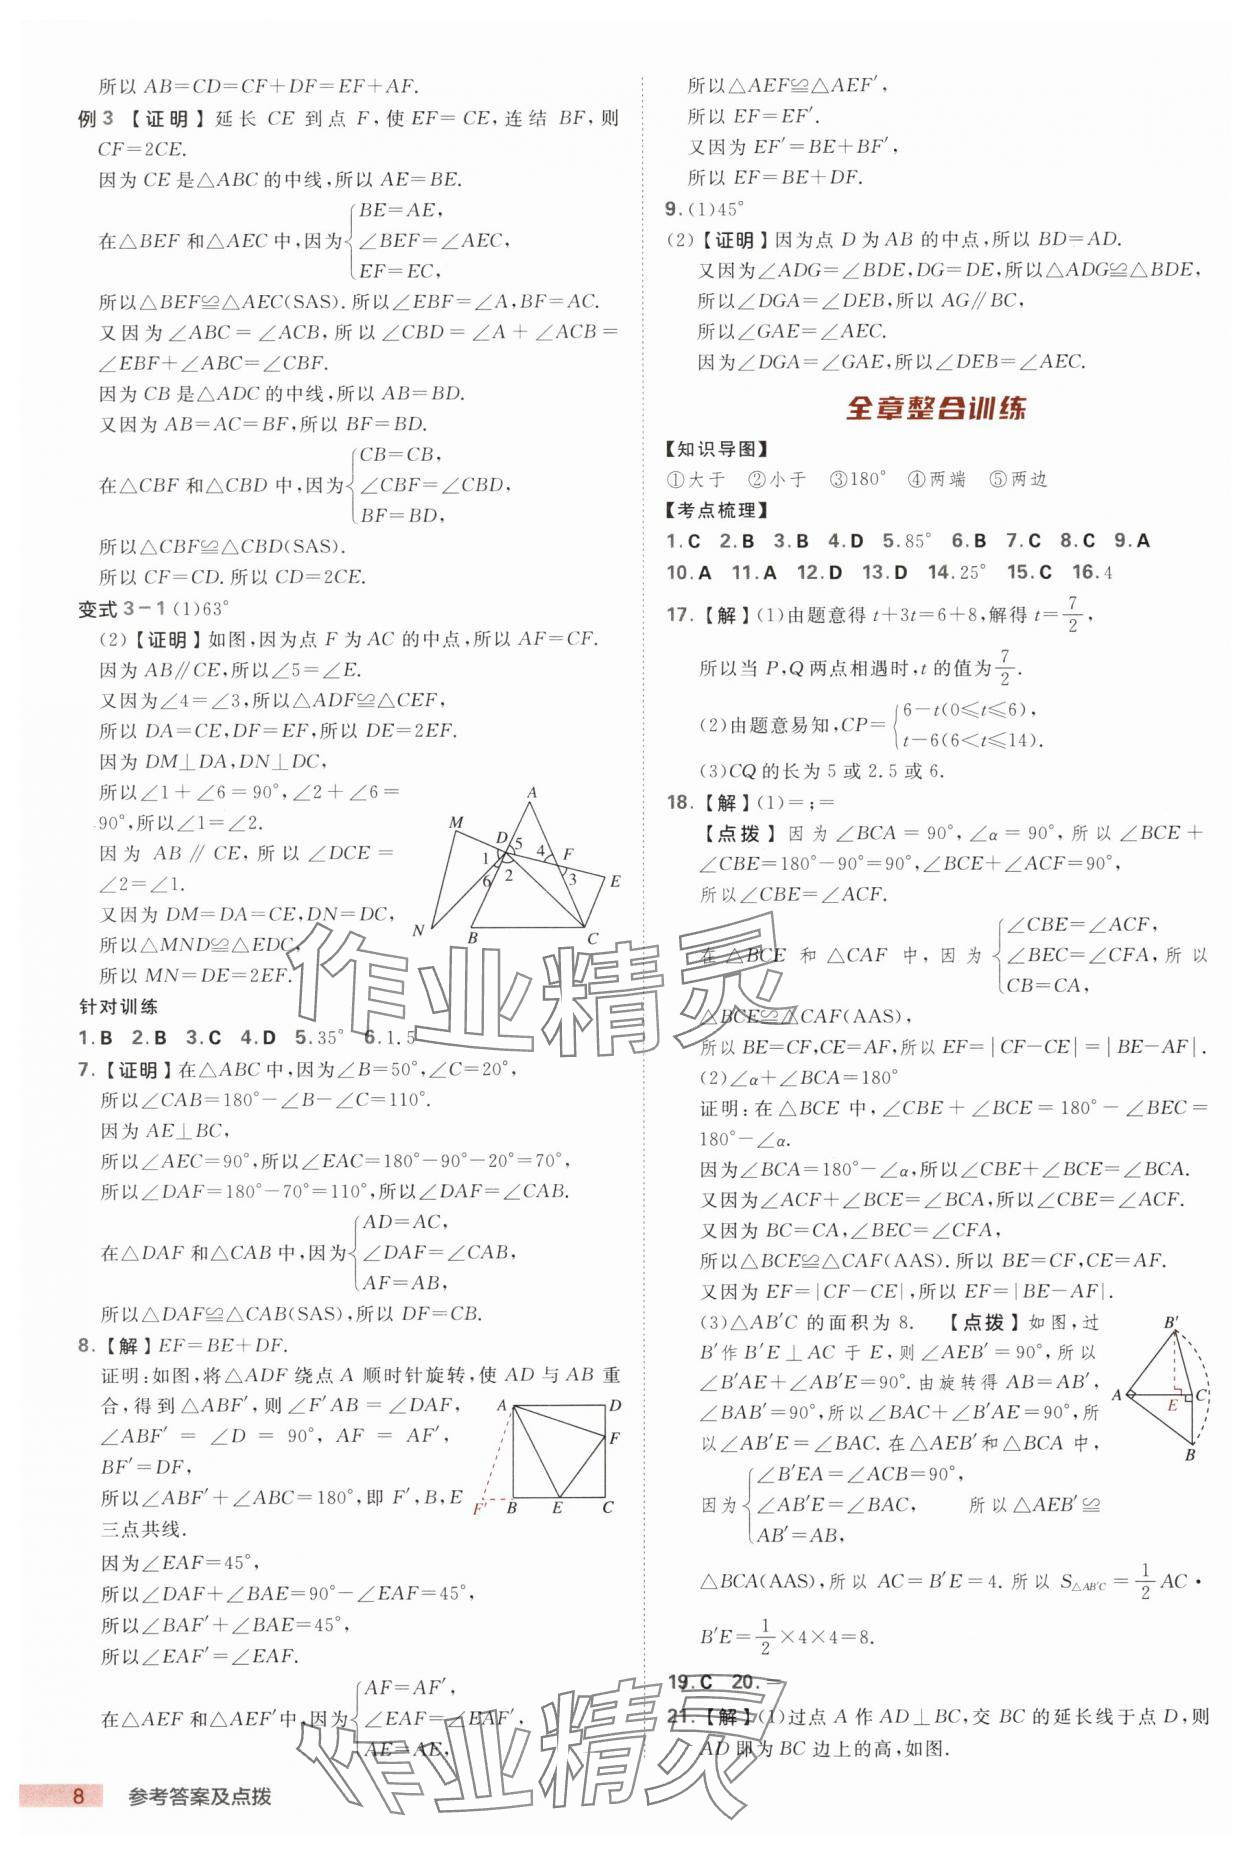 所以 AB=CD=CF+DF=EF+AF.
例 3 【证明】延长 CE 到点 F,使 EF=CE,连结 BF,则
CF=2CE.
因为 CE 是△ABC 的中线,所以 AE=BE.
BE=AE,
在△BEF 和△AEC 中,因为 ∠BEF=∠AEC,
EF=EC,
所以△BEF≌△AEC(SAS).所以∠EBF=∠A,BF=AC.
又因为∠ABC=∠ACB,所以∠CBD=∠A+∠ACB=
∠EBF+∠ABC=∠CBF.
因为 CB 是△ADC 的中线,所以 AB=BD.
又因为 AB=AC=BF,所以 BF=BD.
CB=CB,
在△CBF 和△CBD 中,因为 ∠CBF=∠CBD,
BF=BD,
所以△CBF≌△CBD(SAS).
所以 CF=CD.所以 CD=2CE.
变式 3-1 (1)63°
(2)【证明】如图,因为点 F 为 AC 的中点,所以 AF=CF.
因为 AB∥CE,所以∠5=∠E.
又因为∠4=∠3,所以△ADF≌△CEF,
所以 DA=CE,DF=EF,所以 DE=2EF.
因为 DM⊥DA,DN⊥DC,
所以∠1+∠6=90°,∠2+∠6=
90°,所以∠1=∠2.
因为 AB∥CE,所以∠DCE=
∠2=∠1.
又因为 DM=DA=CE,DN=DC,
所以△MND≌△EDC,
所以 MN=DE=2EF.
A
M
D 5
1 4 F
6 2 3 E
N B C
针对训练
1.B 2.B 3.C 4.D 5.35° 6.1.5
7.【证明】在△ABC 中,因为∠B=50°,∠C=20°,
所以∠CAB=180°-∠B-∠C=110°.
因为 AE⊥BC,
所以∠AEC=90°,所以∠EAC=180°-90°-20°=70°,
所以∠DAF=180°-70°=110°,所以∠DAF=∠CAB.
AD=AC,
在△DAF 和△CAB 中,因为 ∠DAF=∠CAB,
AF=AB,
所以△DAF≌△CAB(SAS),所以 DF=CB.
8.【解】EF=BE+DF.
证明:如图,将△ADF 绕点 A 顺时针旋转,使 AD 与 AB 重
合,得到△ABF′,则∠F′AB=∠DAF,
∠ABF′=∠D=90°,AF=AF′,
BF′=DF,
所以∠ABF′+∠ABC=180°,即 F′,B,E
三点共线.
A D
F
F′ B E C
因为∠EAF=45°,
所以∠DAF+∠BAE=90°-∠EAF=45°,
所以∠BAF′+∠BAE=45°,
所以∠EAF′=∠EAF.
AF=AF′,
在△AEF 和△AEF′中,因为 ∠EAF=∠EAF′,
AE=AE,
所以△AEF≌△AEF′,
所以 EF=EF′.
又因为 EF′=BE+BF′,
所以 EF=BE+DF.
9.(1)45°
(2)【证明】因为点 D 为 AB 的中点,所以 BD=AD.
又因为∠ADG=∠BDE,DG=DE,所以△ADG≌△BDE,
所以∠DGA=∠DEB,所以 AG∥BC,
所以∠GAE=∠AEC.
因为∠DGA=∠GAE,所以∠DEB=∠AEC.
全章整合训练
【知识导图】
①大于 ②小于 ③180° ④两端 ⑤两边
【考点梳理】
1.C 2.B 3.B 4.D 5.85° 6.B 7.C 8.C 9.A
10.A 11.A 12.D 13.D 14.25° 15.C 16.4
17.【解】(1)由题意得 t+3t=6+8,解得 t=7/2,
所以当 P,Q 两点相遇时,t 的值为7/2.
(2)由题意易知,CP= 6-t(0≤t≤6),
t-6(6<t≤14).
(3)CQ 的长为 5 或 2.5 或 6.
18.【解】(1)=;=
【点拨】因为∠BCA=90°,∠α=90°,所以∠BCE+
∠CBE=180°-90°=90°,∠BCE+∠ACF=90°,
所以∠CBE=∠ACF.
∠CBE=∠ACF,
在△BCE 和△CAF 中,因为 ∠BEC=∠CFA,所以
CB=CA,
△BCE≌△CAF(AAS),
所以 BE=CF,CE=AF,所以 EF=|CF-CE|=|BE-AF|.
(2)∠α+∠BCA=180°
证明:在△BCE 中,∠CBE+∠BCE=180°-∠BEC=
180°-∠α.
因为∠BCA=180°-∠α,所以∠CBE+∠BCE=∠BCA.
又因为∠ACF+∠BCE=∠BCA,所以∠CBE=∠ACF.
又因为 BC=CA,∠BEC=∠CFA,
所以△BCE≌△CAF(AAS).所以 BE=CF,CE=AF.
又因为 EF=|CF-CE|,所以 EF=|BE-AF|.
(3)△AB′C 的面积为 8. 【点拨】如图,过
B′作 B′E⊥AC 于 E,则∠AEB′=90°,所以
∠B′AE+∠AB′E=90°.由旋转得 AB=AB′,
∠BAB′=90°,所以∠BAC+∠B′AE=90°,所
以∠AB′E=∠BAC.在△AEB′和△BCA 中,
B′
A E C
B
∠B′EA=∠ACB=90°,
因为 ∠AB′E=∠BAC, 所以△AEB′≌
AB′=AB,
△BCA(AAS),所以 AC=B′E=4.所以 S△AB′C=1/2 AC·
B′E=1/2×4×4=8.
19.C 20.一
21.【解】(1)过点 A 作 AD⊥BC,交 BC 的延长线于点 D,则
AD 即为 BC 边上的高,如图.
作业精灵
作业精灵
8 参考答案及点拨